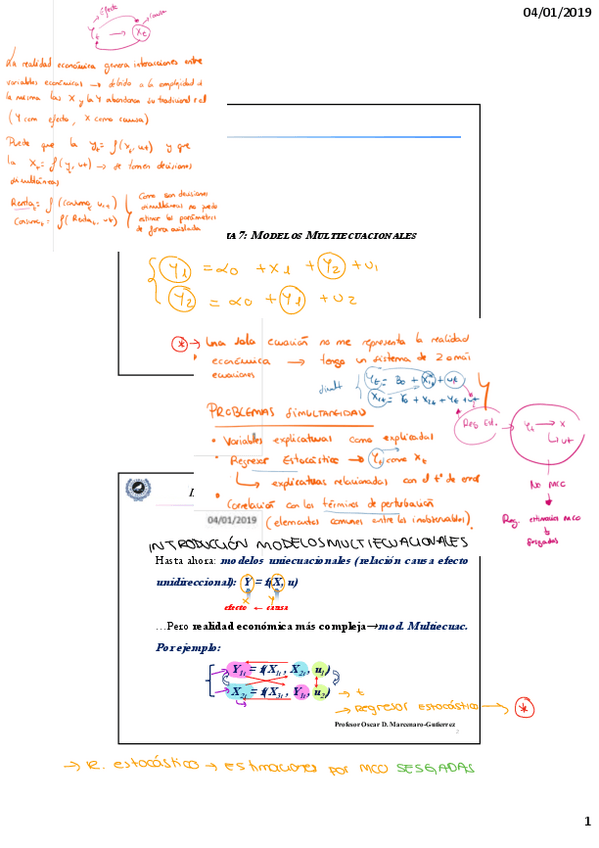 04/01/2019
Efecto
Causa
Yt → Xt
La realidad económica genera interacciones entre
variables económicas → debido a la complejidad d
la misma las X y la Y abandonan su tradicional rol
(Y com efecto, X como causa)
Puede que la Yt = f(Xt, ut) y que
la Xt = f(Yt, ut) → se tomen decisiones
simultáneas
Rentat = f(consumot, u1t)
Consumot = f(Rentat, ut)
Como son decisiones
simultáneas no puedo
estimar los parámetros
de forma aislada
A 7: MODELOS MULTIECUACIONALES
Y1 = α0 + X1 + Y2 + U1
Y2 = α0 + Y1 + U2
* → Una sola ecuación no me representa la realidad
económica → tengo un sistema de 2 o más
ecuaciones
simult
PROBLEMAS SIMULTANEIDAD
• Variables explicativas como explicadas
• Regresor Estocástico → Yt como Xt
↳ explicativas relacionadas con el tº de error
• Correlación con los términos de perturbación
(elementos comunes entre los inobservables)
04/01/2019
Reg Est. →
Yt → X
↳ ut
No MCO
Reg. estimación MCO
Sesgados
INTRODUCCIÓN MODELOS MULTIECUACIONALES
Hasta ahora: modelos uniecuacionales (relación causa efecto
unidireccional): Y = f(X, u)
Y X
efecto ← causa
…Pero realidad económica más compleja→mod. Multiecuac.
Por ejemplo:
Y1t = f(X1t, X2t, u1t)
X2t = f(X3t, Y1t, u2t)
→ t
→ Regresor estocástico → *
Profesor Oscar D. Marcenaro-Gutierrez
2
→ R. estocástico → estimaciones por MCO SESGADAS
1